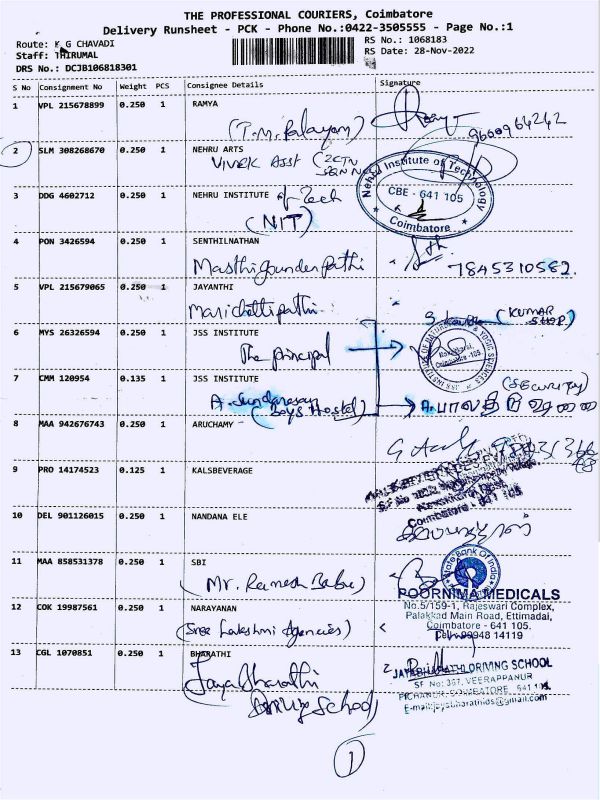 THE PROFESSIONAL COURIERS, Coimbatore
Delivery Runsheet - PCK - Phone No.:0422-3505555 - Page No.:1
Route: K G CHAVADI
Staff: THIRUMAL
DRS No.: DCJB106818301
RS No.: 1068183
RS Date: 28-Nov-2022
S No Consignment No Weight PCS Consignee Details Signature
1 VPL 215678899 0.250 1 RAMYA
(T.M. Palayam) 9600964242
2 SLM 308268670 0.250 1 NEHRU ARTS
VIVEK ASST
Nehru Institute of Technology
CBE - 641 105
Coimbatore
3 DDG 4602712 0.250 1 NEHRU INSTITUTE of Tech
(NIT)
4 PON 3426594 0.250 1 SENTHILNATHAN
Masthigounden pathi 7845310582.
5 VPL 215679065 0.250 1 JAYANTHI
Marichettipathi (KUMAR SHOP)
6 MYS 26326594 0.250 1 JSS INSTITUTE
The principal
Coimbatore -105
7 CMM 120954 0.135 1 JSS INSTITUTE
A. Sundaresan (SECURITY)
(Boys Hostel)
8 MAA 942676743 0.250 1 ARUCHAMY
9 PRO 14174523 0.125 1 KALSBEVERAGE
Coimbatore - 641 105
10 DEL 901126015 0.250 1 NANDANA ELE
11 MAA 858531378 0.250 1 SBI
State Bank Of India
(Mr. Ramesh Babu)
POORNIMA MEDICALS
No.5/159-1, Rajeswari Complex,
Palakkad Main Road, Ettimadai,
Coimbatore - 641 105.
Cell: 99948 14119
12 COK 19987561 0.250 1 NARAYANAN
(Sree Lakshmi Agencies)
13 CGL 1070851 0.250 1 BHARATHI
Jaya Bharathi
Driving School
JAYABHARATHI DRIVING SCHOOL
SF No: 367, VEERAPPANUR
PICHANUR, COIMBATORE 641 105.
E-mail:jayabharathids@gmail.com
1